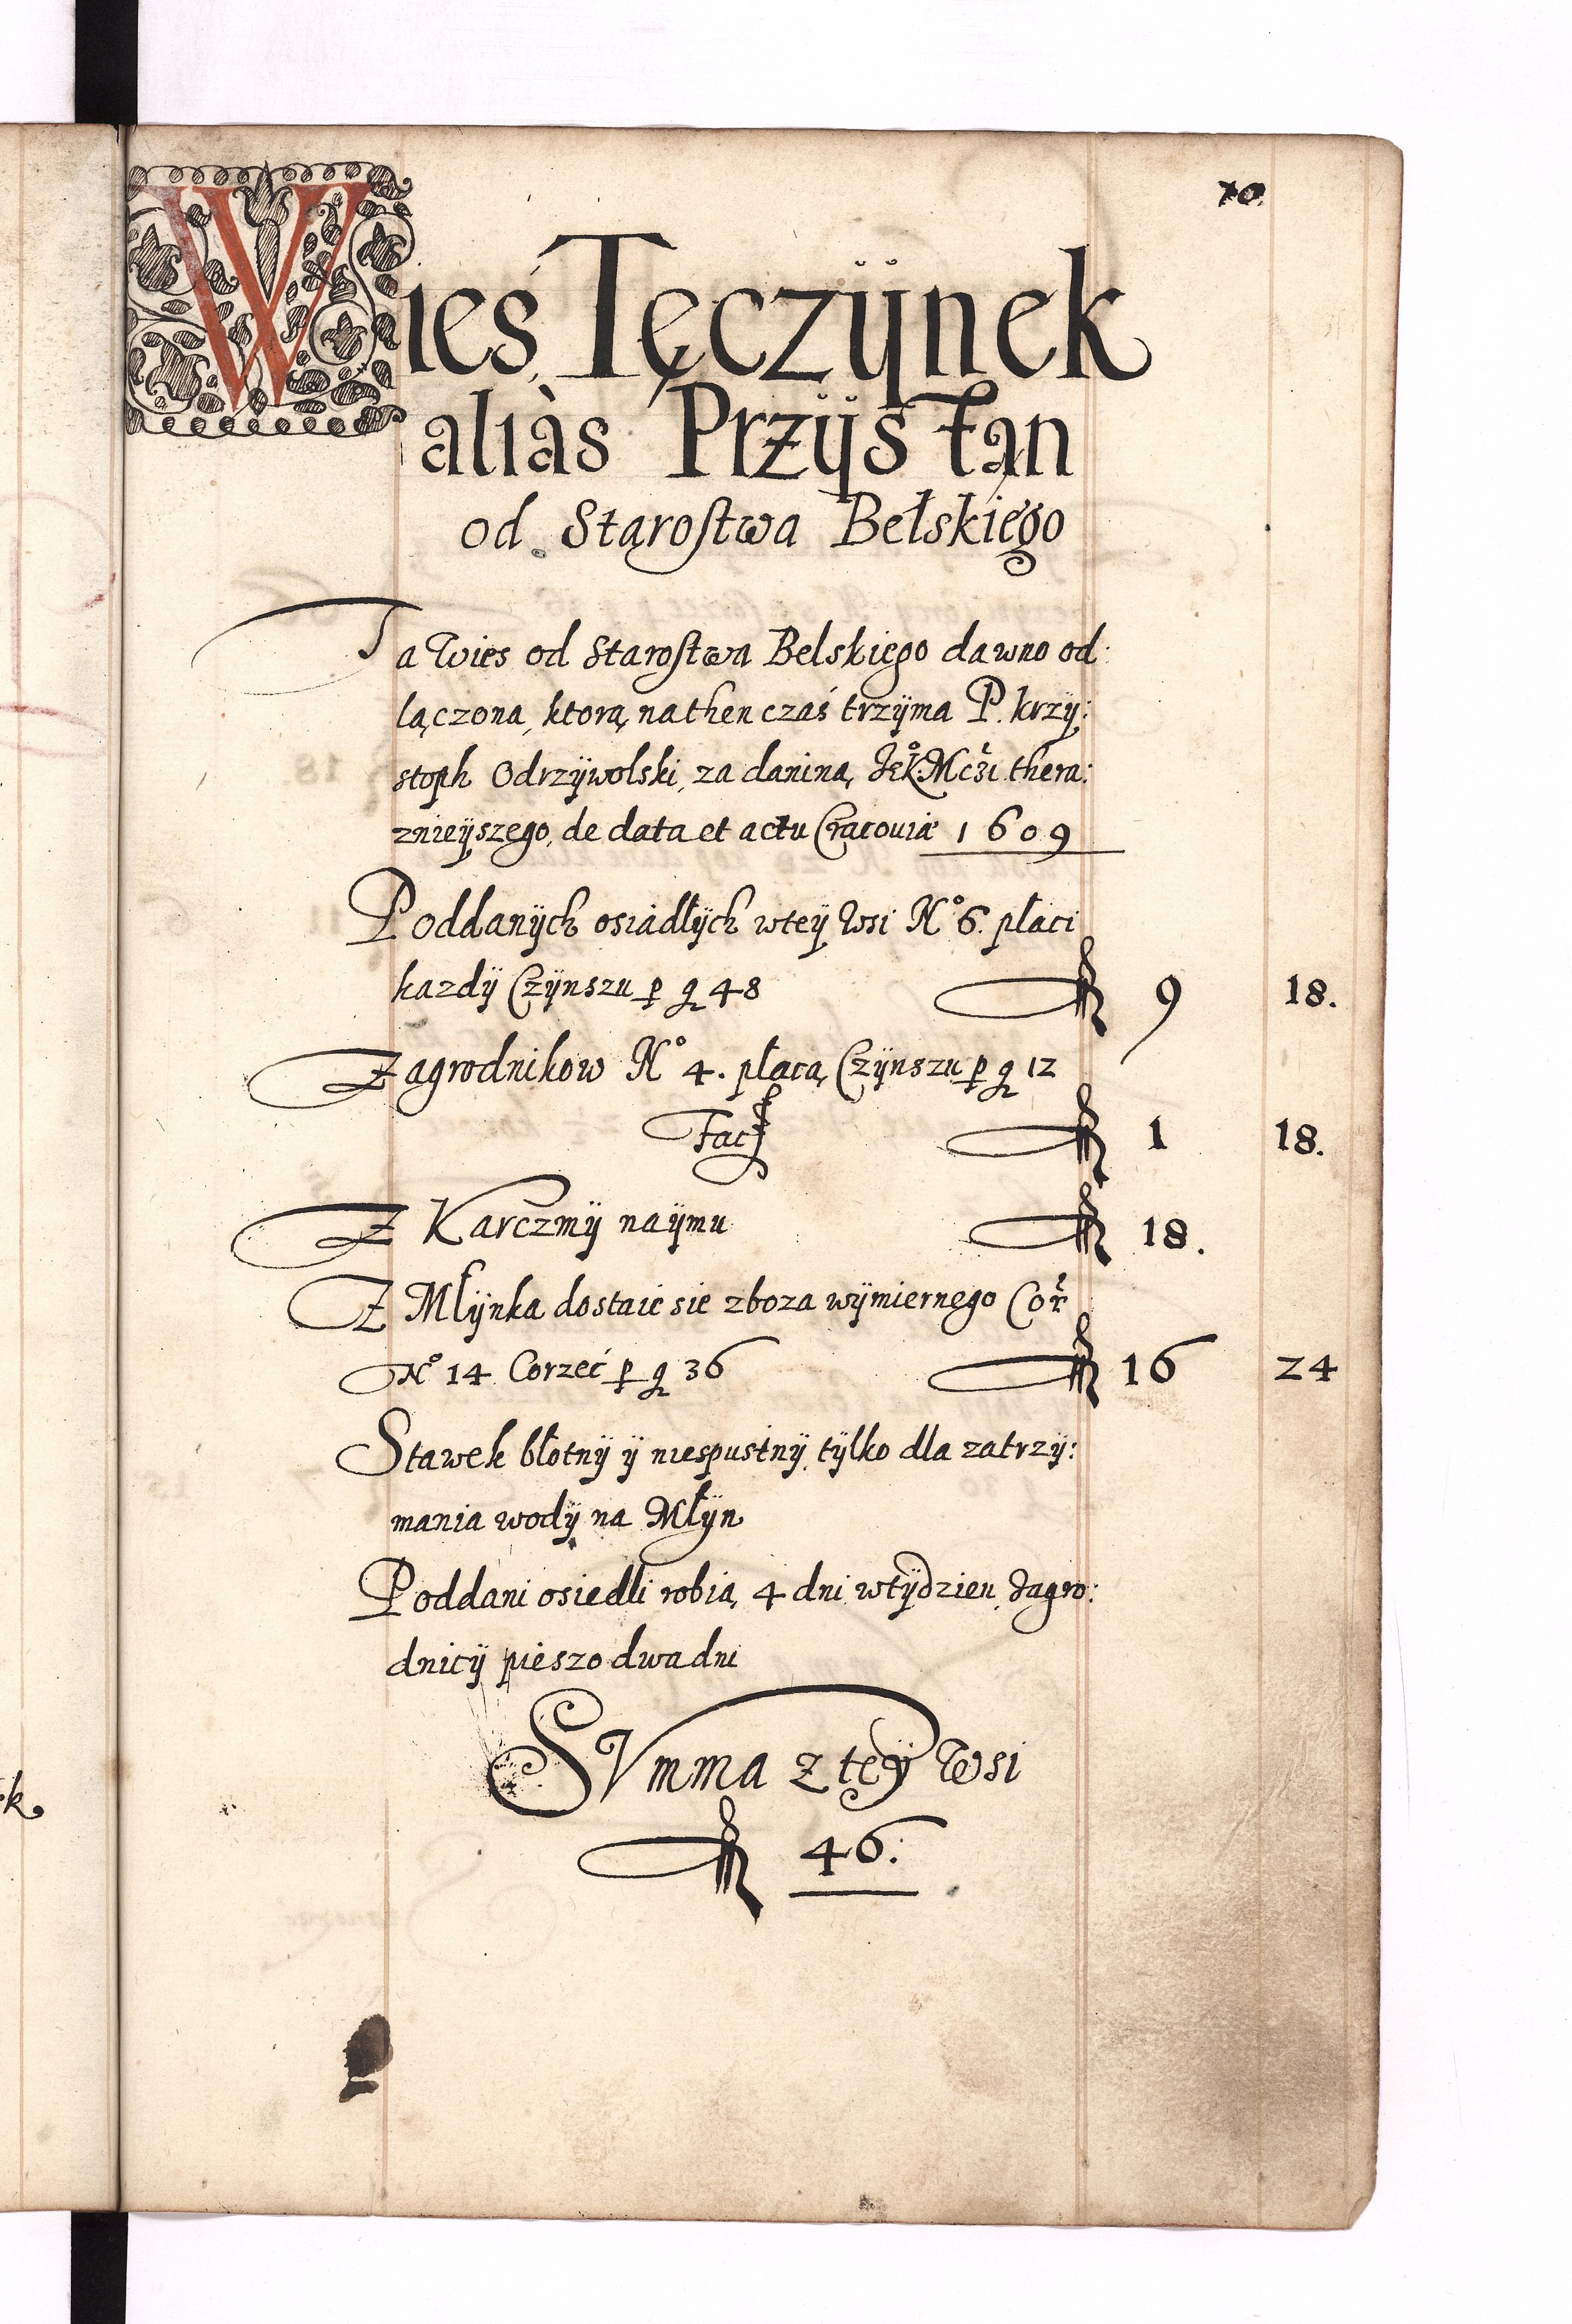 70.
Wieś Tęczÿnek
aliàs Przÿstan
od Starostwa Bełskiego
Ta Wies od Starostwa Belskiego dawno od:
lączona, ktorą nathen czaś trzÿma P. krzÿ:
stoph Odrzÿwolski, za daniną JeKMcżi thera:
znieÿszego, de data et actu Cracouiæ 1609
Poddanÿch osiadłÿch wteÿ Wsi No 6. płaci
kazdÿ Czÿnszu p g 48 fl 9 18.
Zagrodnikow No 4. płacą Czÿnszu p g 12
Facit fl 1 18.
Z Karczmÿ naÿmu fl 18.
Z Młÿnka dostaie sie zboza wÿmiernego Cor
No 14 Corzeć p g 36 fl 16 24
Stawek błotnÿ ÿ niespustnÿ tÿlko dla zatrzÿ:
mania wodÿ na Młÿn
Poddani osiedli robią 4 dni wtÿdzien Zagro:
dnicÿ pieszo dwa dni
SVmma z teÿ Wsi
fl 46.
k